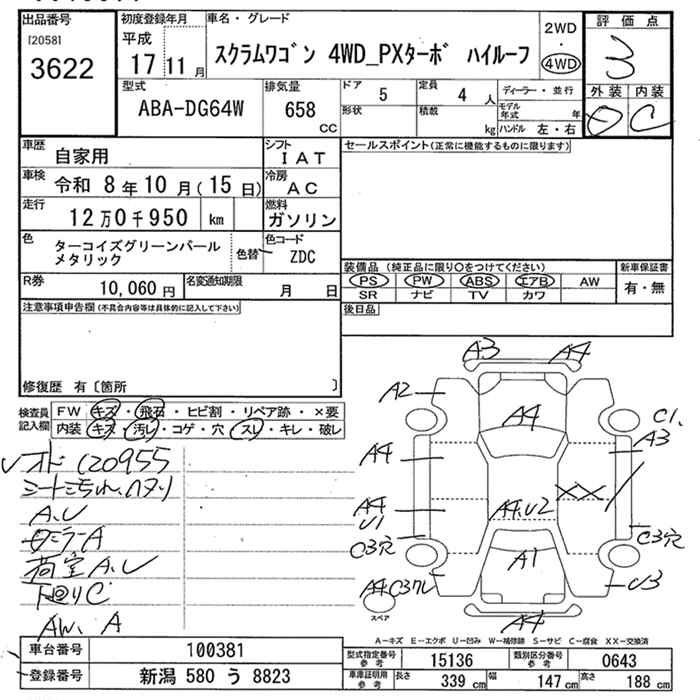 出品番号
[2058]
3622
初度登録年月
平成
17 11 月
車名・グレード
スクラムワゴン 4WD_PXターボ ハイルーフ
2WD
・
4WD
評価点
3
外装 内装
D C
型式
ABA-DG64W
排気量
658
CC
ドア 5
定員 4 人
ディーラー・並行
形状
積載 kg
モデル年式 年
ハンドル 左・右
車歴
自家用
シフト
IAT
車検
令和 8年10月(15日)
冷房
AC
走行
12万0千950 km
燃料
ガソリン
色
ターコイズグリーンパール
メタリック
色替
色コード
ZDC
R券
10,060円
名変通知期限
月 日
セールスポイント(正常に機能するものに限ります)
装備品 (純正品に限り○をつけてください)
PS PW ABS エアB AW
SR ナビ TV カワ
新車保証書
有・無
後日品
注意事項申告欄(不具合内容等は具体的に記入して下さい)
修復歴 有〔箇所 〕
検査員
記入欄
FW キズ・飛石・ヒビ割・リペア跡・×要
内装 キズ・汚レ・コゲ・穴・スレ・キレ・破レ
120955
A.U
ミラーA
荷室A.U
下回りC
AW.A
A3 A4
A2
A4
C1.
A3
A4
A4
U1
C3穴
A4.U2
XX
C3穴
A1
U3
A4
スペア
A-キズ E-エクボ U-凹み W-補修跡 S-サビ C-腐食 XX-交換済
車台番号
100381
登録番号
新潟 580 う 8823
型式指定番号
参考
15136
類別区分番号
参考
0643
車庫証明用
参考
長さ 339 cm
幅 147 cm
高さ 188 cm